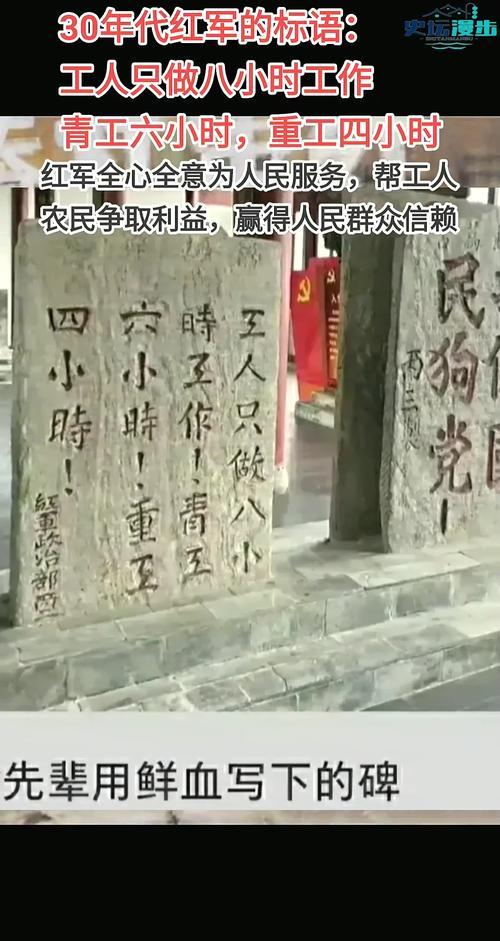 30年代红军的标语：
史坛漫步
SHITANMANBU
工人只做八小时工作
青工六小时，重工四小时
红军全心全意为人民服务，帮工人
农民争取利益，赢得人民群众信赖
工人只做八小
時工作！青工
六小時！重工
四小時！
紅軍政治部
民狗党！
先辈用鲜血写下的碑